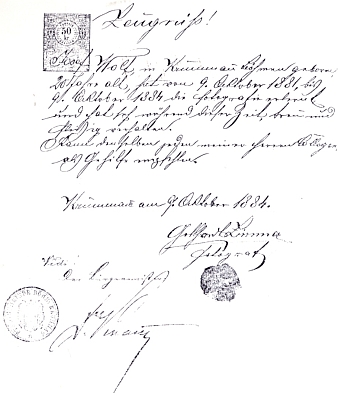 Zeugniß!
50
Josef Wolf, in Krummau Böhmen geboren,
20 Jahre alt, hat vom 9. Oktober 1881 bis
9. Oktober 1884 die Fotografie gelernt
und hat sich während dieser Zeit treu und
fleißig verhalten.
Kann denselben jedem meiner Herren Kollegen
als Gehilfe empfehlen.
Krummau am 9. Oktober 1884.
Fotograf
Vidi
Der Bürgermeister